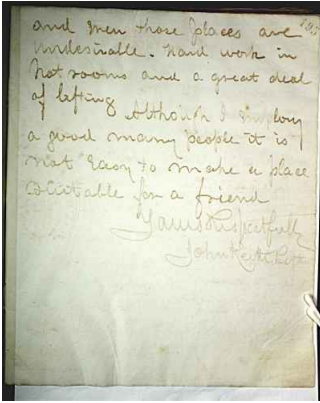 and even those places are
undesirable. Hard work in
hot rooms and a great deal
of lifting Although I employ
a good many people it is
not easy to make a place
suitable for a friend
Yours Respectfully
John